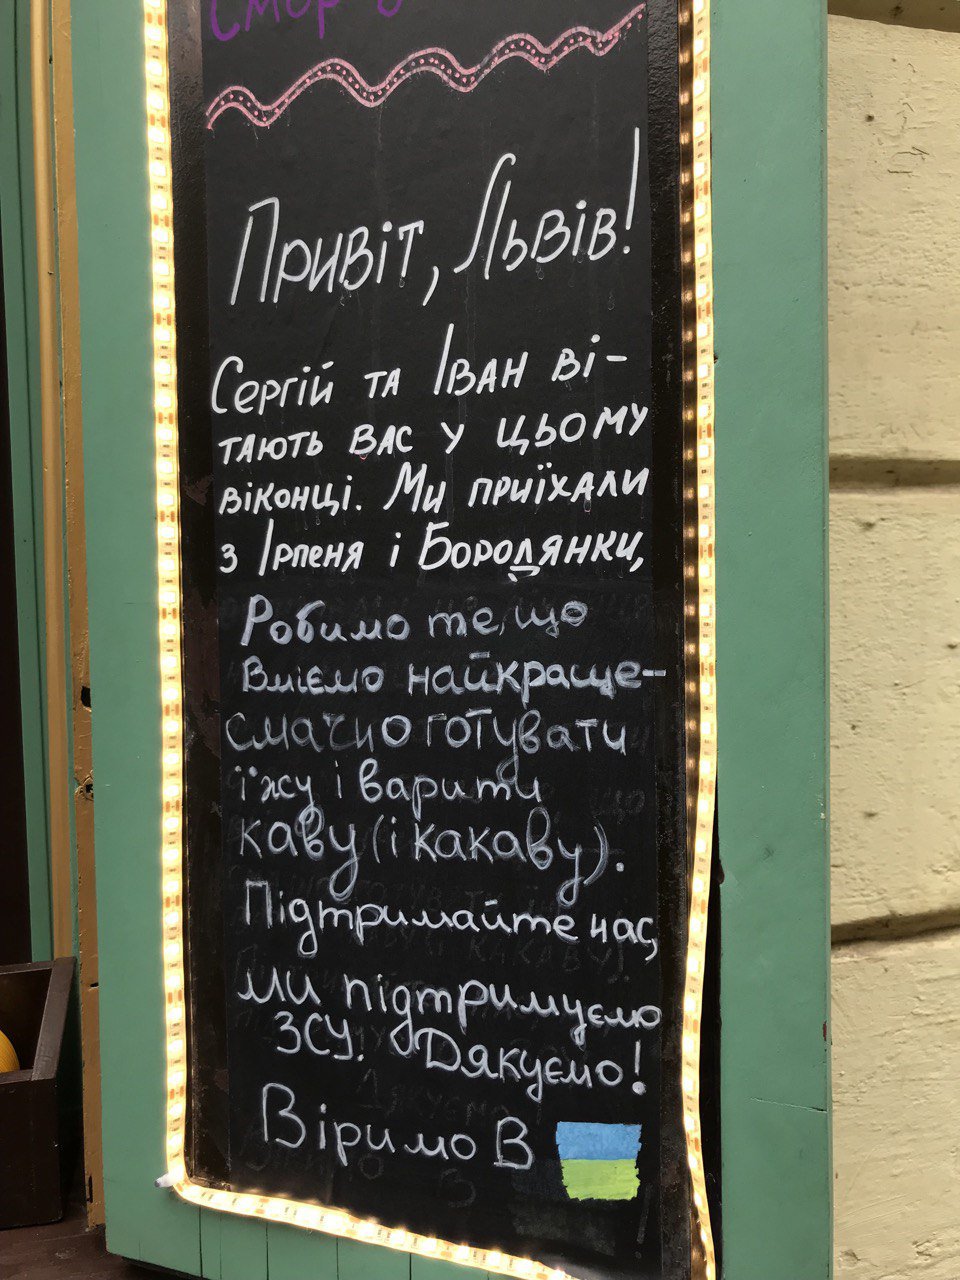 Привіт, Львів!
Сергій та Іван ві-
тають вас у цьому
віконці. Ми приїхали
з Ірпеня і Бородянки,
Робимо те, що
вміємо найкраще-
смачно готувати
їжу і варити
каву (і какаву).
Підтримайте нас,
ми підтримуємо
ЗСУ. Дякуємо!
Віримо в